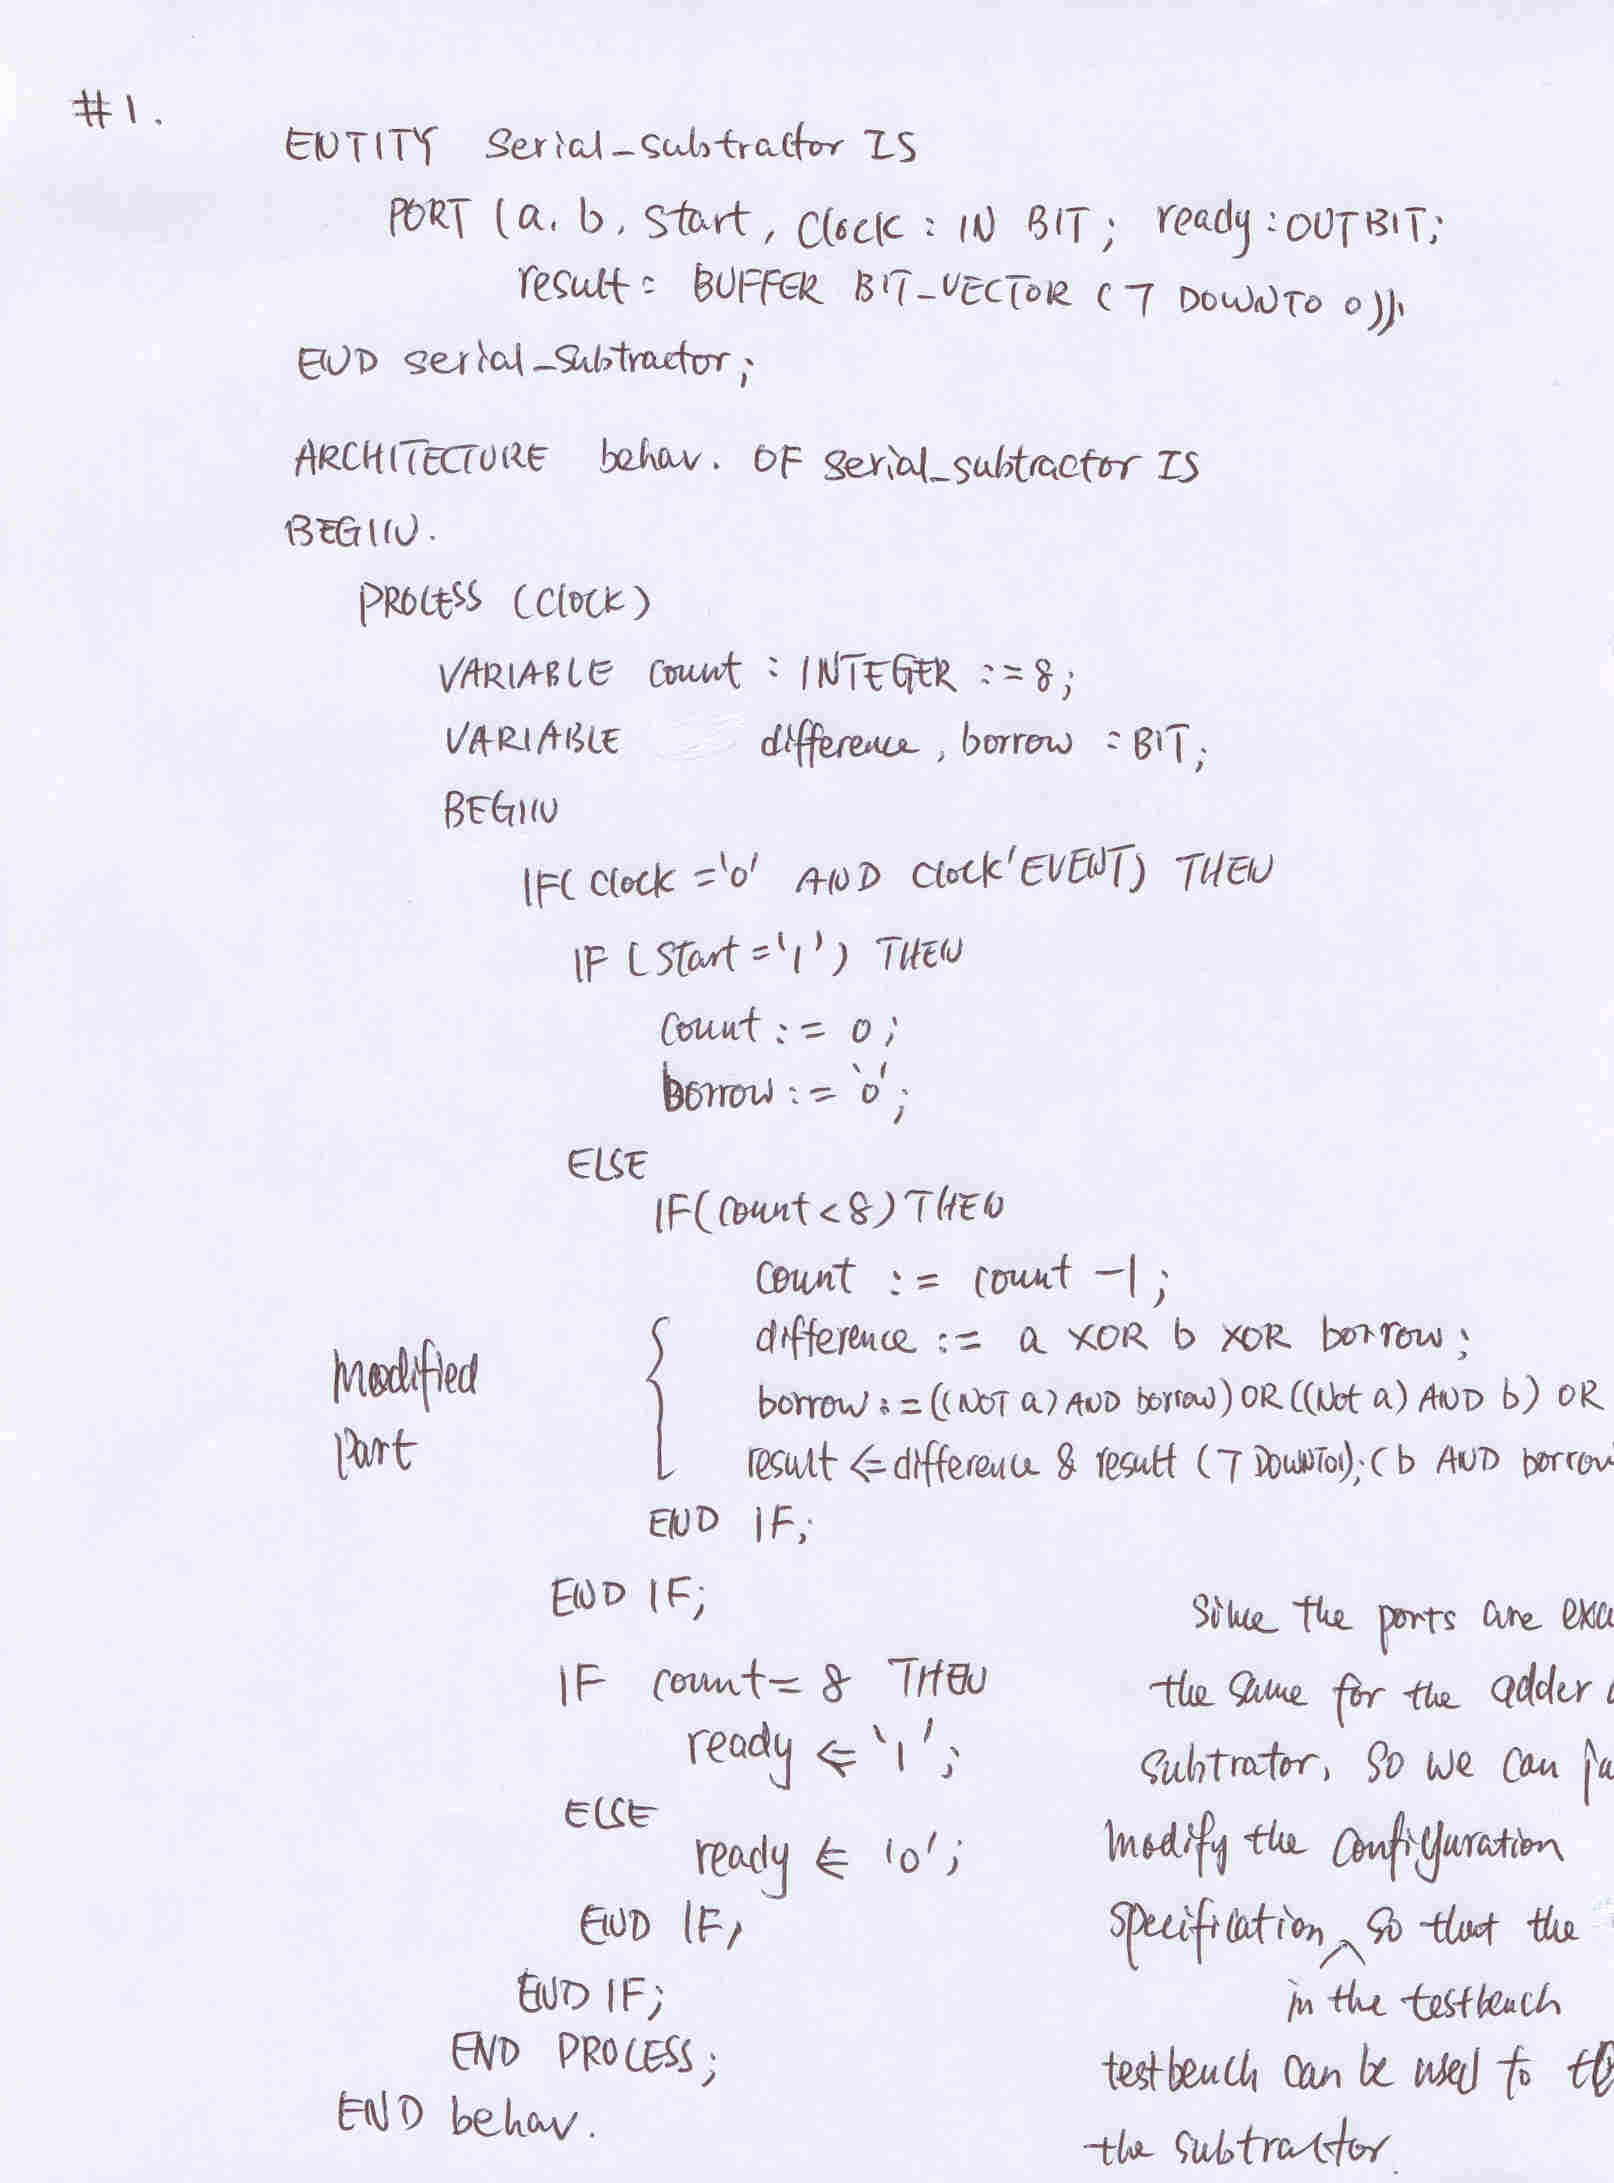 #1.
ENTITY serial_subtractor IS
PORT (a, b, start, clock : IN BIT; ready : OUT BIT;
result : BUFFER BIT_VECTOR (7 DOWNTO 0));
END serial_subtractor;
ARCHITECTURE behav. OF serial_subtractor IS
BEGIN.
PROCESS (clock)
VARIABLE count : INTEGER := 8;
VARIABLE difference, borrow : BIT;
BEGIN
IF( clock = '0' AND clock'EVENT) THEN
IF (start = '1') THEN
count := 0;
borrow := '0';
ELSE
IF(count < 8) THEN
count := count -1;
difference := a XOR b XOR borrow;
borrow := ((NOT a) AND borrow) OR ((Not a) AND b) OR
result <= difference & result (7 DOWNTO 1); (b AND borrow
Modified
Part
END IF;
END IF;
IF count = 8 THEN
ready <= '1';
ELSE
ready <= '0';
END IF;
END IF;
END PROCESS;
END behav.
Since the ports are
the same for the adder
subtrator, so we can
modify the configuration
specification so that the
in the testbench
testbench can be used to
the subtractor.